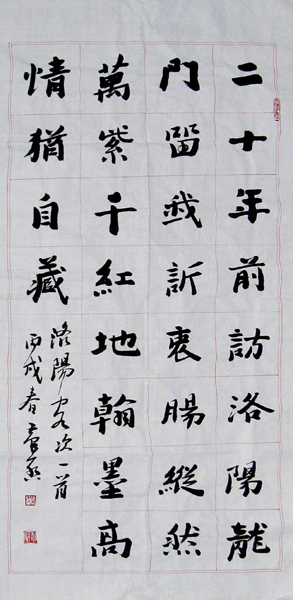 二十年前訪洛陽龍
門留我訢衷腸縱然
萬紫千紅地翰墨高
情猶自藏
洛陽客次一首
丙戌春